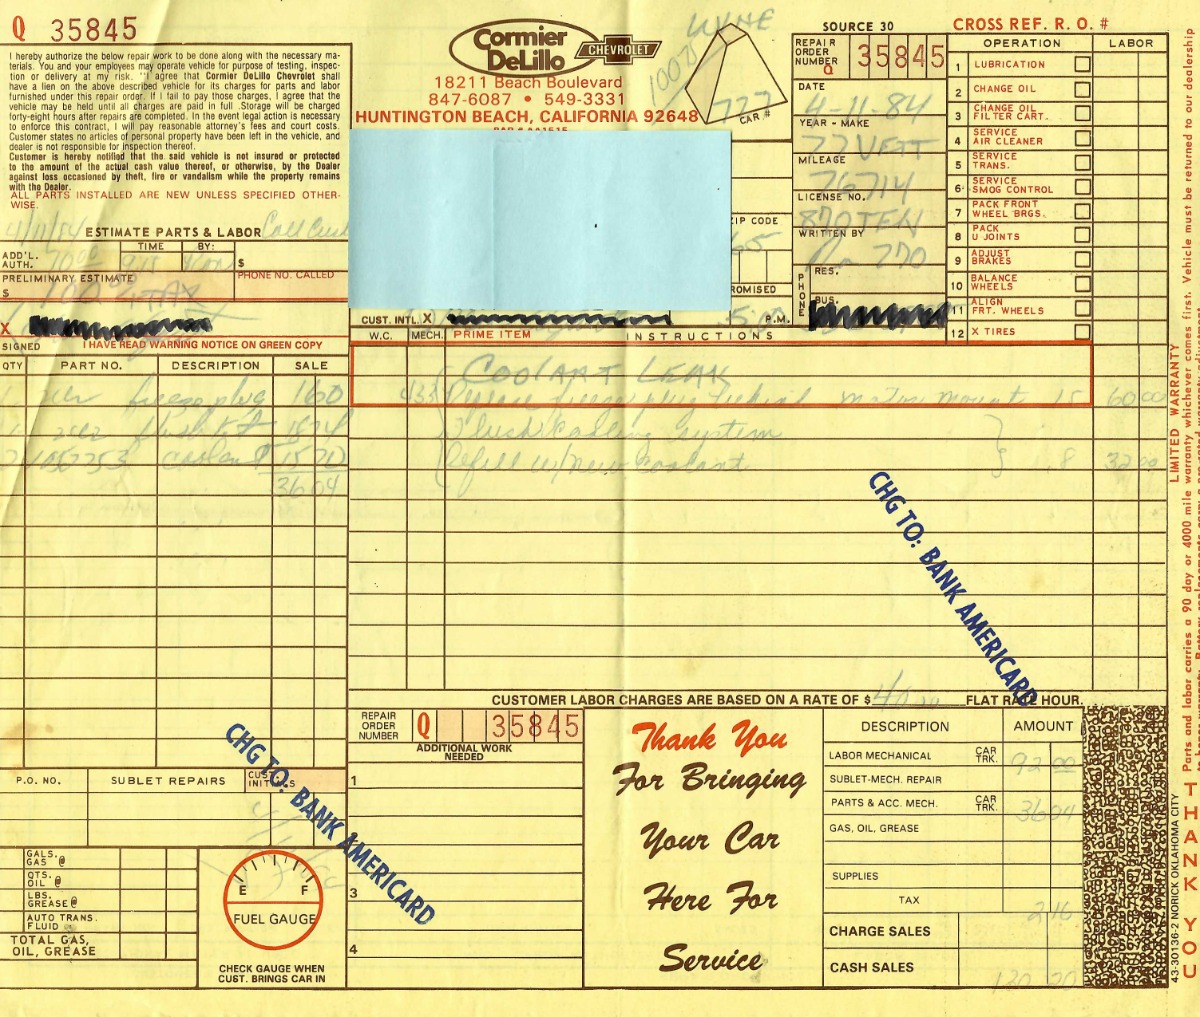 Q 35845
I hereby authorize the below repair work to be done along with the necessary ma-
terials. You and your employees may operate vehicle for purpose of testing, inspec-
tion or delivery at my risk. I agree that Cormier DeLillo Chevrolet shall
have a lien on the above described vehicle for its charges for parts and labor
furnished under this repair order. If I fail to pay those charges, I agree that the
vehicle may be held until all charges are paid in full. Storage will be charged
forty-eight hours after repairs are completed. In the event legal action is necessary
to enforce this contract, I will pay reasonable attorney's fees and court costs.
Customer states no articles of personal property have been left in the vehicle, and
dealer is not responsible for inspection thereof.
Customer is hereby notified that the said vehicle is not insured or protected
to the amount of the actual cash value thereof, or otherwise, by the Dealer
against loss occasioned by theft, fire or vandalism while the property remains
with the Dealer.
ALL PARTS INSTALLED ARE NEW UNLESS SPECIFIED OTHER-
WISE.
ESTIMATE PARTS & LABOR
ADD'L. AUTH. TIME BY: $
PRELIMINARY ESTIMATE PHONE NO. CALLED
$ 100.00 + TAX
X
SIGNED I HAVE READ WARNING NOTICE ON GREEN COPY
Cormier DeLillo CHEVROLET
18211 Beach Boulevard
847-6087 • 549-3331
HUNTINGTON BEACH, CALIFORNIA 92648
727
CAR #
ZIP CODE
CUST. INTL. X P.M.
SOURCE 30
REPAIR ORDER NUMBER Q 35845
DATE
4-11-84
YEAR - MAKE
77 VETT
MILEAGE
76714
LICENSE NO.
870TEN
WRITTEN BY
270
PHONE RES.
BUS.
CROSS REF. R. O. #
OPERATION LABOR
1 LUBRICATION
2 CHANGE OIL
3 CHANGE OIL FILTER CART.
4 SERVICE AIR CLEANER
5 SERVICE TRANS.
6 SERVICE SMOG CONTROL
7 PACK FRONT WHEEL BRGS.
8 PACK U JOINTS
9 ADJUST BRAKES
10 BALANCE WHEELS
11 ALIGN FRT. WHEELS
12 X TIRES
QTY PART NO. DESCRIPTION SALE
freeze plug 160
flush kit 1874
1052753 coolant 1570
3604
W.C. MECH. PRIME ITEM INSTRUCTIONS
COOLANT LEAK
433 Replace freeze plug behind motor mount 15 60 00
Flush Cooling System
Refill w/New Coolant 8 32 00
CHG TO: BANK AMERICARD
CUSTOMER LABOR CHARGES ARE BASED ON A RATE OF $ 40.00 FLAT RATE HOUR.
P.O. NO. SUBLET REPAIRS CUST. INITIALS
CHG TO: BANK AMERICARD
GALS. GAS @
QTS. OIL @
LBS. GREASE @
AUTO TRANS. FLUID
TOTAL GAS, OIL, GREASE
E F
FUEL GAUGE
CHECK GAUGE WHEN
CUST. BRINGS CAR IN
REPAIR ORDER NUMBER Q 35845
ADDITIONAL WORK
NEEDED
1
3
4
Thank You
For Bringing
Your Car
Here For
Service
DESCRIPTION AMOUNT
LABOR MECHANICAL CAR TRK. 92 00
SUBLET-MECH. REPAIR
PARTS & ACC. MECH. CAR TRK. 36 04
GAS, OIL, GREASE
SUPPLIES
TAX 2 16
CHARGE SALES
CASH SALES 130 20
43-30136-2 NORICK OKLAHOMA CITY
LIMITED WARRANTY
Parts and labor carries a 90 day or 4000 mile warranty whichever comes first. Vehicle must be returned to our dealership
THANK YOU